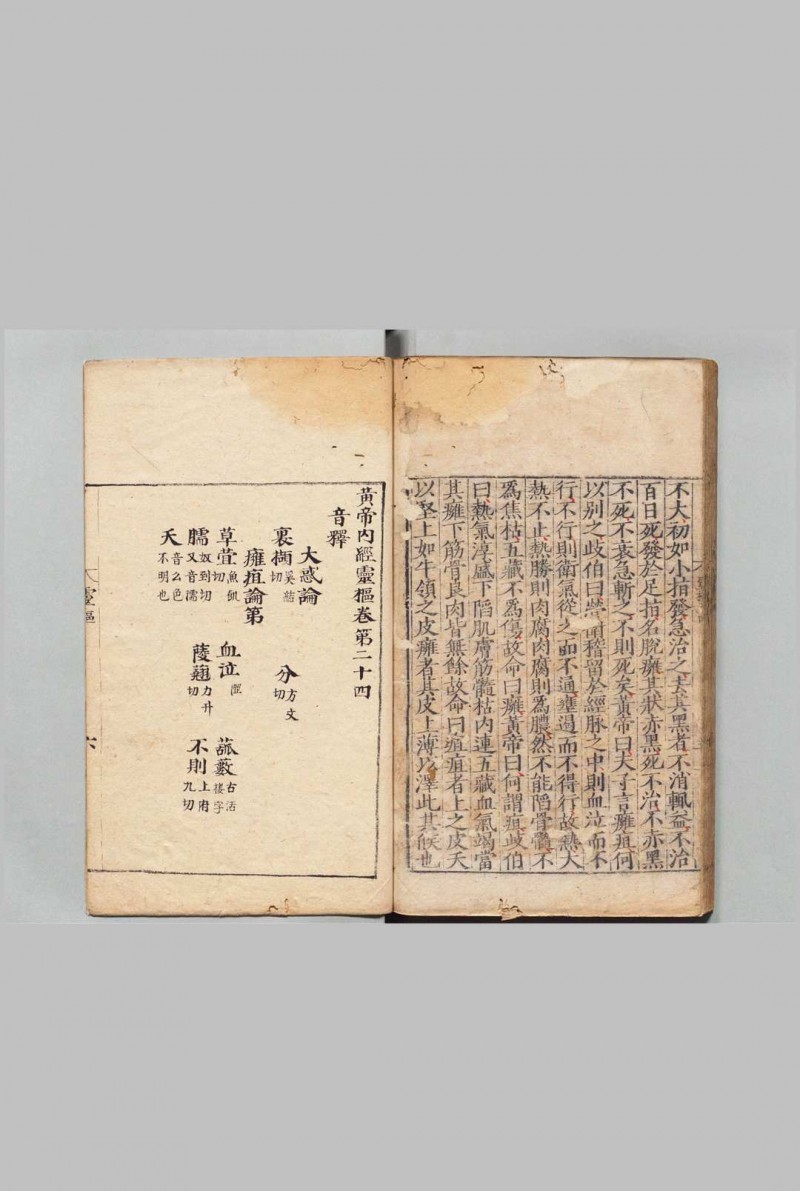 不大初如小指發急治之去其黑者不消輒益不治
百日死發於足指名脫癰其狀赤黑死不治不赤黑
不死不衰急斬之不則死矣黃帝曰夫子言癰疽何
以別之歧伯曰營衛稽留於經脉之中則血泣而不
行不行則衛氣從之而不通壅遏而不得行故熱大
熱不止熱勝則肉腐肉腐則為膿然不能陷骨髓不
為焦枯五藏不為傷故命曰癰黃帝曰何謂疽歧伯
曰熱氣淳盛下陷肌膚筋髓枯内連五藏血氣竭當
其癰下筋骨良肉皆無餘故命曰疽疽者上之皮夭
以堅上如牛領之皮癰者其皮上薄以澤此其候也
黃帝内經靈樞卷第二十四
音釋
大惑論
裏擷 奚結切
分 方文切
癰疽論第
草萓 魚飢切
血泣 澀
菰䕯 古活 捿字
臑 奴到切 又音濡
䔖翹 力升切
不則 上府九切
夭 音么色不明也
靈樞
六